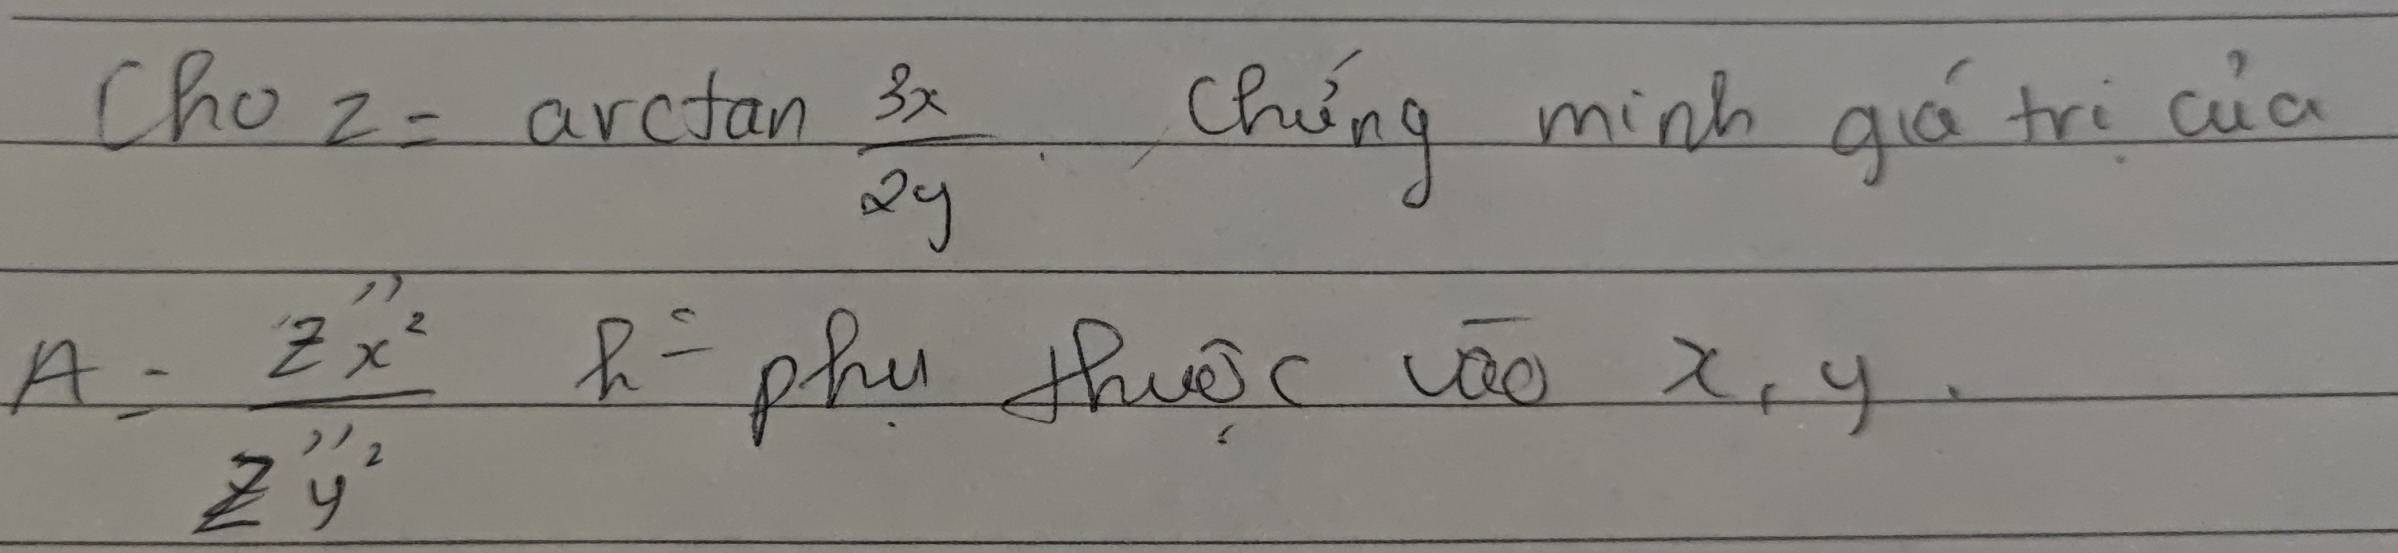 Cho z = arctan 3x/2y. Chứng minh giá trị của
A = z''x²/z''y² k° phụ thuộc vào x, y.